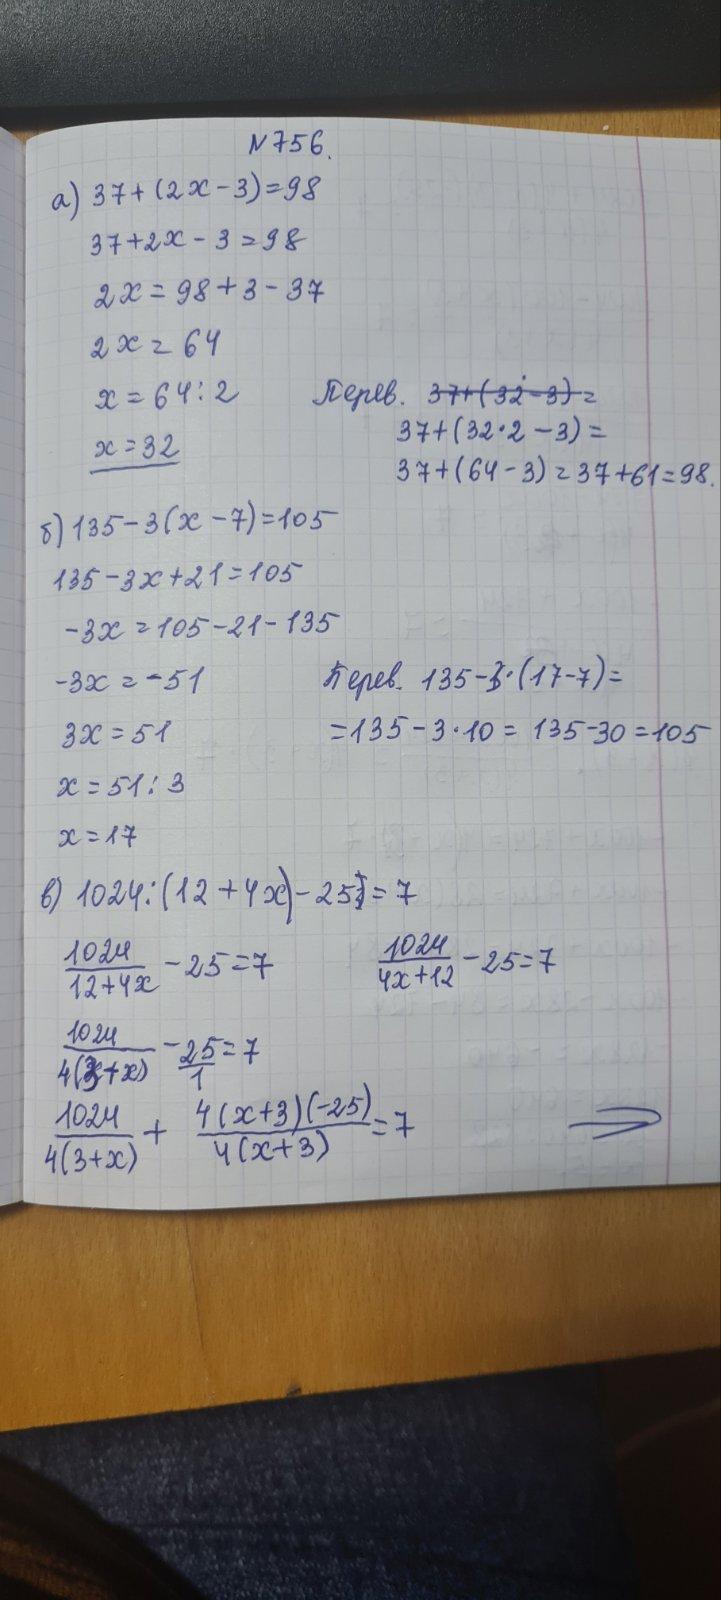 N756.
а) 37+(2x-3)=98
37+2x-3=98
2x=98+3-37
2x=64
x=64:2
x=32
Перев. 37+(32-3)=
37+(32·2-3)=
37+(64-3)=37+61=98.
б) 135-3(x-7)=105
135-3x+21=105
-3x=105-21-135
-3x=-51
3x=51
x=51:3
x=17
Перев. 135-3·(17-7)=
=135-3·10=135-30=105
в) 1024:(12+4x)-25=7
1024/(12+4x) -25=7
1024/(4x+12) -25=7
1024/4(3+x) - 25/1 =7
1024/4(3+x) + 4(x+3)(-25)/4(x+3) =7
⇒